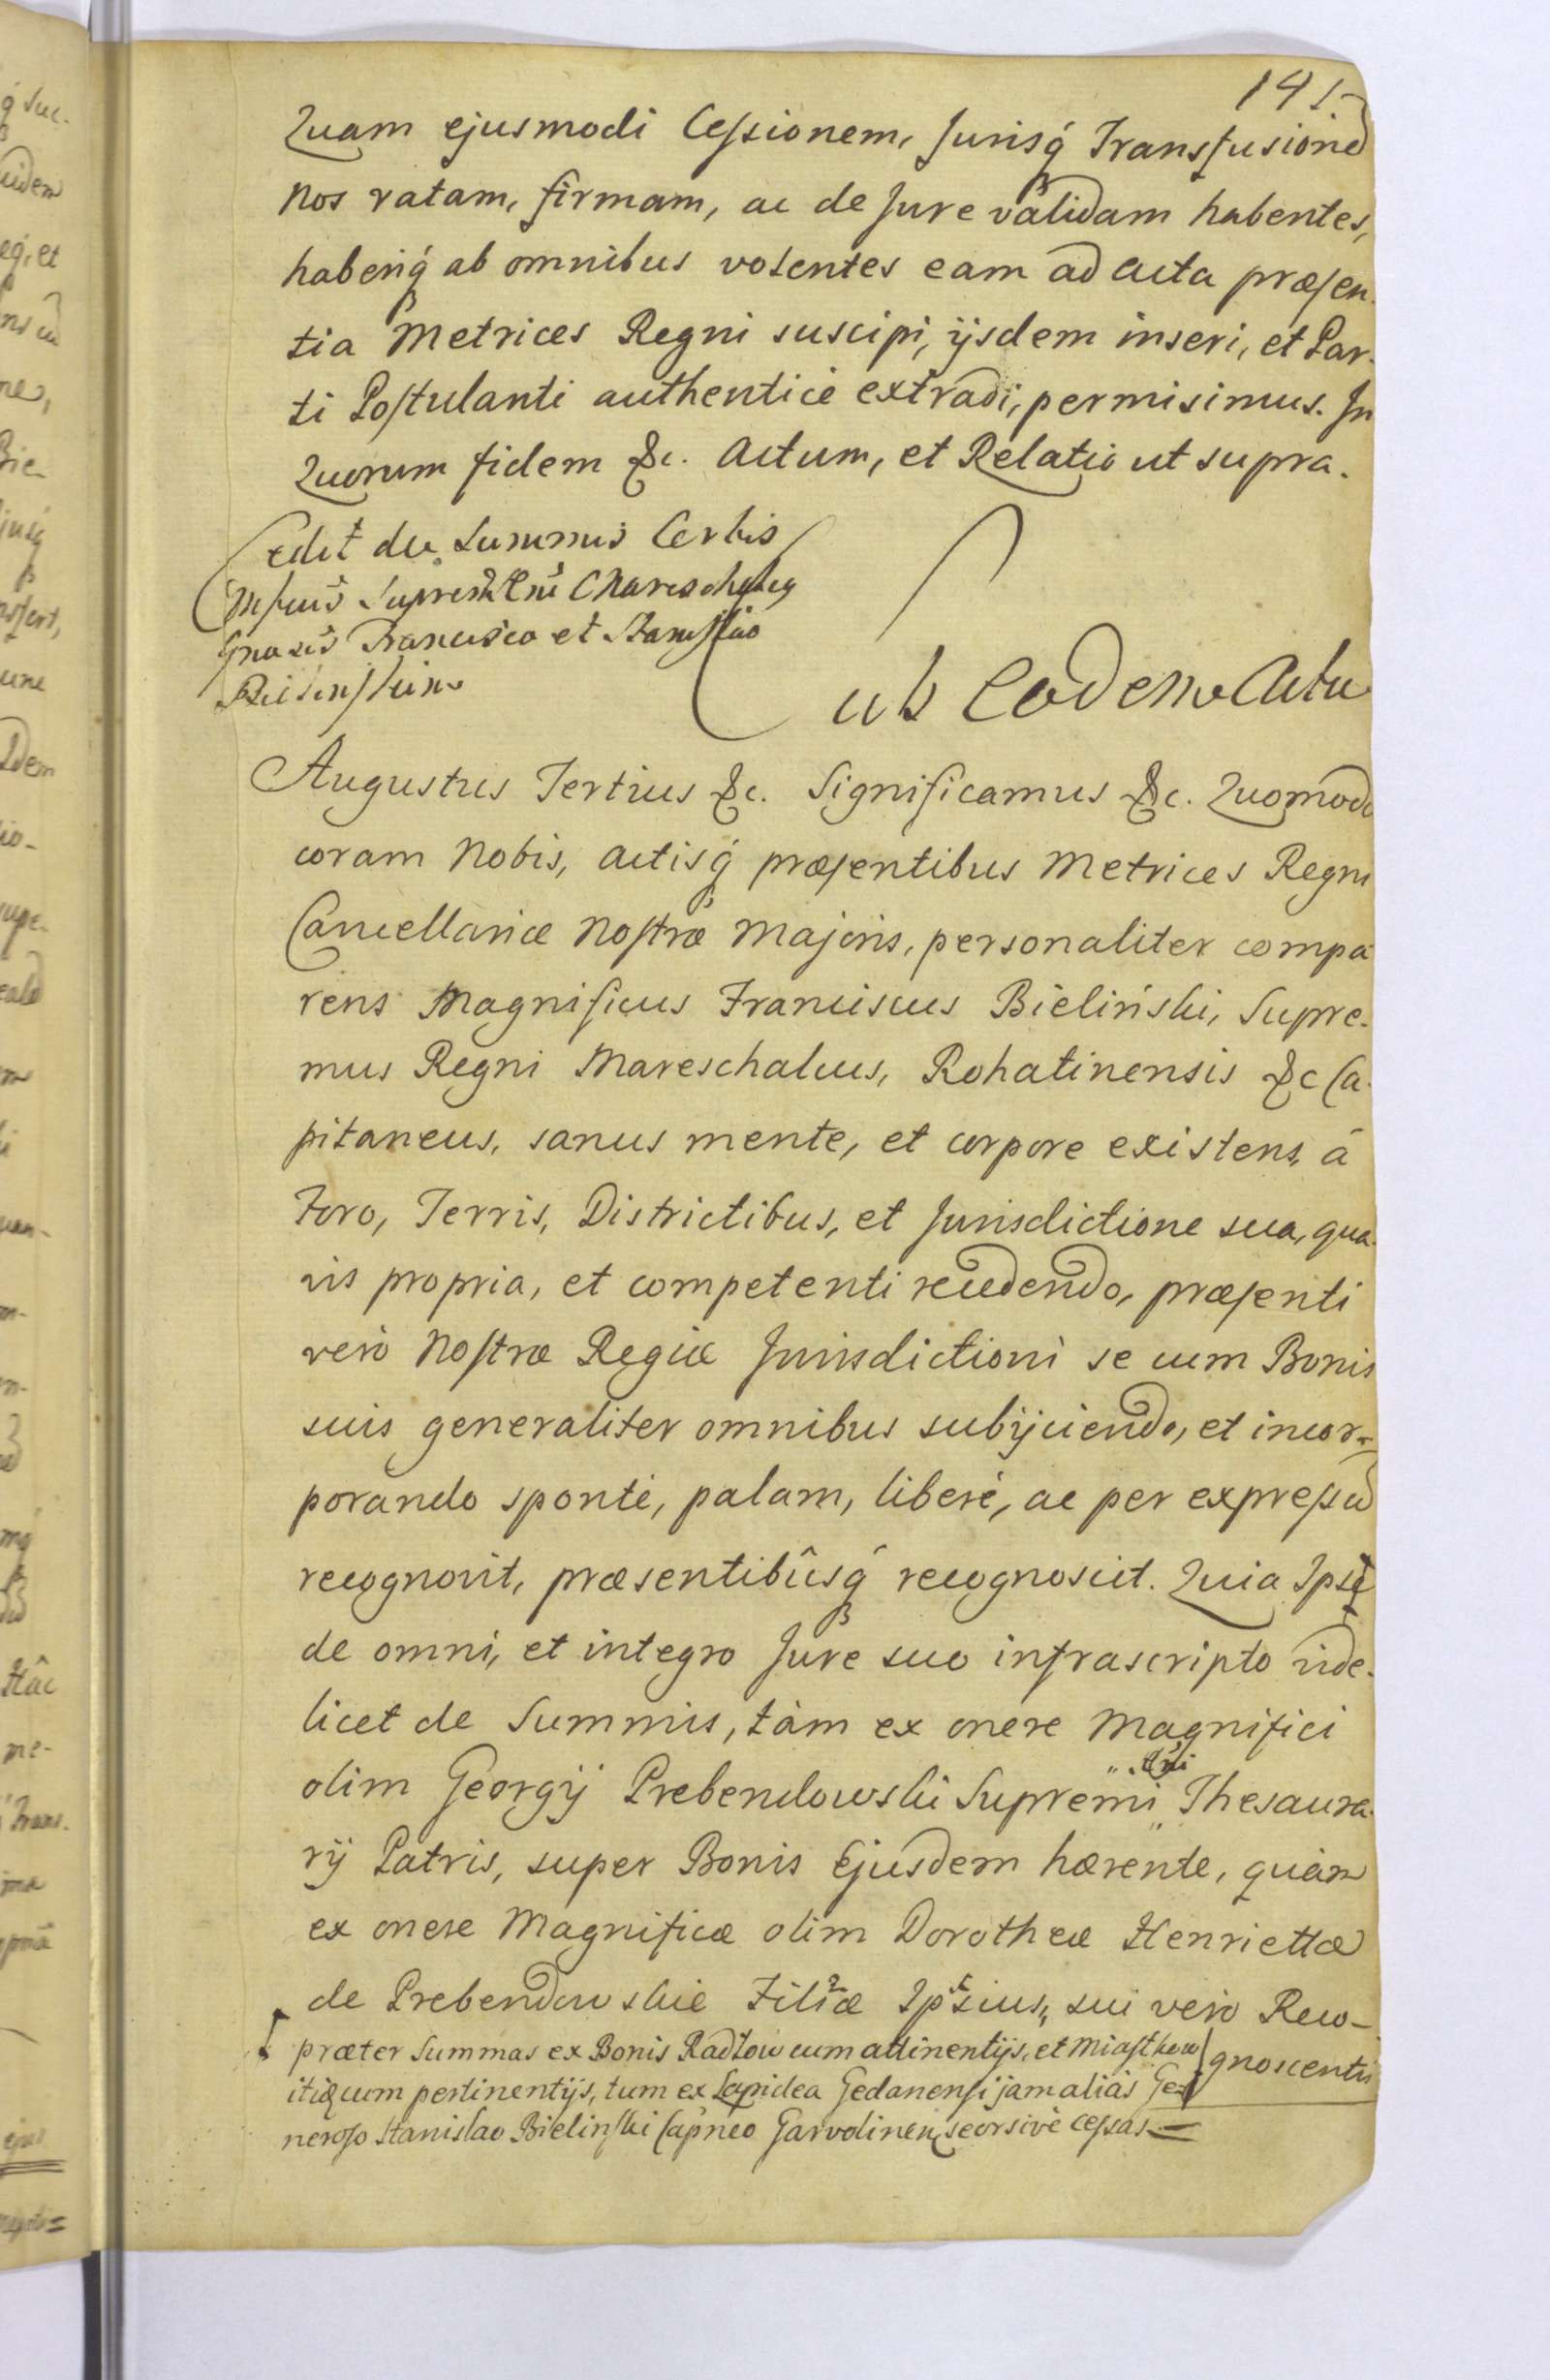 141
Quam ejusmodi Cessionem, Jurisq́ Transfusionē
Nos ratam, firmam, ac de Jure validam habentes,
haberiq́ ab omnibus volentes eam ad acta præsen-
tia Metrices Regni suscipi, ijsdem inseri, et Par-
ti Postulanti authenticè extradi, permisimus. In
Quorum fidem &c. Actum, et Relatio ut supra.
de Summis Certis
Francisco et
ub Eodem Actu
Augustus Tertius &c. Significamus &c. Quomodo
coram Nobis, Actisq́ præsentibus Metrices Regni
Cancellariæ Nostræ Majoris, personaliter compa-
rens Magnificus Franciscus Bieliński, Supre-
mus Regni Mareschalcus, Rohatinensis &c Ca-
pitaneus, sanus mente, et corpore existens, á
Foro, Terris, Districtibus, et Jurisdictione sua, qua-
vis propria, et competenti recedendo, præsenti
verò Nostræ Regiæ Jurisdictioni se cum Bonis
suis generaliter omnibus subijciendo, et incor-
porando sponte, palam, liberè, ac per expressū
recognovit, præsentibûsq́ recognoscit. Quia Ipse
de omni, et integro Jure suo infrascripto vide-
licet de Summis, tàm ex onere Magnifici
olim Georgij Prebendowski Supremi Rñi Thesaura-
rij Patris, super Bonis Ejusdem hærente, quàm
ex onere Magnificæ olim Dorotheæ Henriettæ
de Prebendowskie Filiæ Ipsius, sui verò Reco-
gnoscentis
præter Summas ex Bonis Radłow cum attinentijs, et Miasthow
itiq cum pertinentijs, tum ex Lapidea Gedanensi jam aliàs Ge-
neroso Stanislao Bielinski Capneo Garvolinen seorsivè cessas